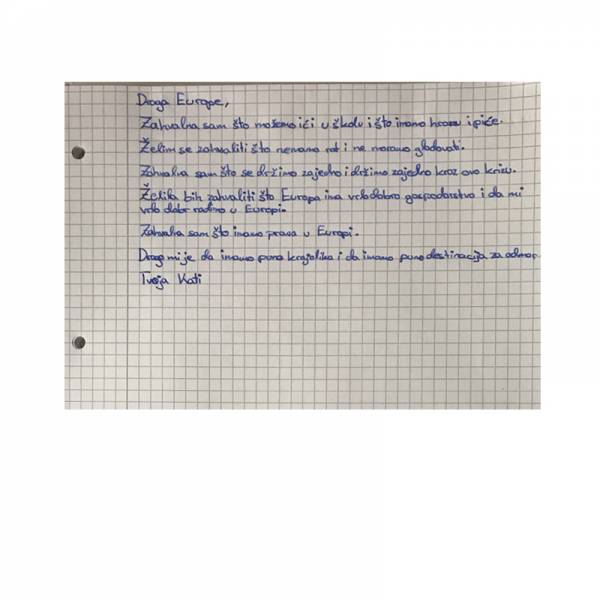 Draga Europe,
Zahvalna sam što možemo ići u školu i što imamo hranu i piće.
Želim se zahvaliti što nemamo rat i ne moramo gladovati.
Zahvalna sam što se držimo zajedno i držimo zajedno kroz ovo krizu.
Želila bih zahvaliti što Europa ima vrlo dobro gospodarstvo i da mi
vrlo dobr radimo u Europi.
Zahvalna sam što imamo prava u Europi.
Drago mi je da imamo puno krajolika i da imamo puno destinacija za odmor.
Tvoja Kati